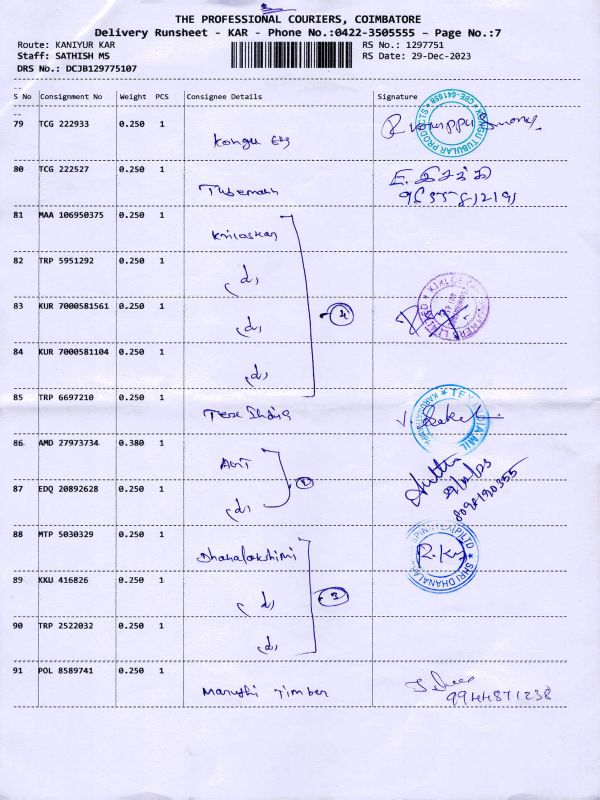 THE PROFESSIONAL COURIERS, COIMBATORE
Delivery Runsheet - KAR - Phone No.:0422-3505555 - Page No.:7
Route: KANIYUR KAR RS No.: 1297751
Staff: SATHISH MS RS Date: 29-Dec-2023
DRS No.: DCJB129775107
S No Consignment No Weight PCS Consignee Details Signature
79 TCG 222933 0.250 1 Kongu Eng
80 TCG 222527 0.250 1 E. இசக்கி
9655812191
81 MAA 106950375 0.250 1 Kriloskar
82 TRP 5951292 0.250 1 (d)
83 KUR 7000581561 0.250 1 (d) 4
84 KUR 7000581104 0.250 1 (d)
85 TRP 6697210 0.250 1 Texa India
86 AMD 27973734 0.380 1
29/12/23
87 EDQ 20892628 0.250 1 (d) 2
88 MTP 5030329 0.250 1 Dhanalakshimi R.K
SHRI DHANALA
89 KKU 416826 0.250 1 (d) 3
90 TRP 2522032 0.250 1 (d)
91 POL 8589741 0.250 1 Maruthi Timber
9944871238